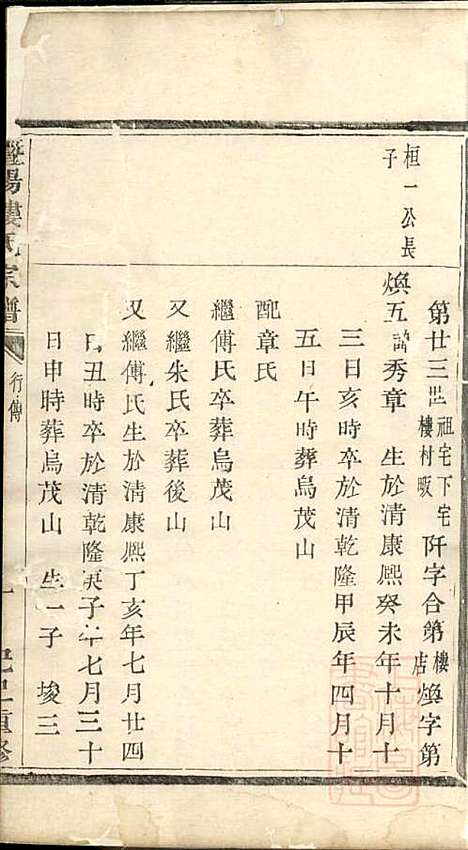 桓一公長
子
第廿三世祖宅下宅樓村畈阡字合第樓店煥字第
煥五諱秀章 生於清康熙癸未年十月十
三日亥時卒於清乾隆甲辰年四月十
五日午時葬烏茂山
配章氏
繼傅氏卒葬烏茂山
又繼朱氏卒葬後山
又繼傅氏生於清康熙丁亥年七月廿四
日丑時卒於清乾隆庚子年七月三十
日申時葬烏茂山 生一子 埈三
暨陽樓氏宗譜
行傳
一
重修